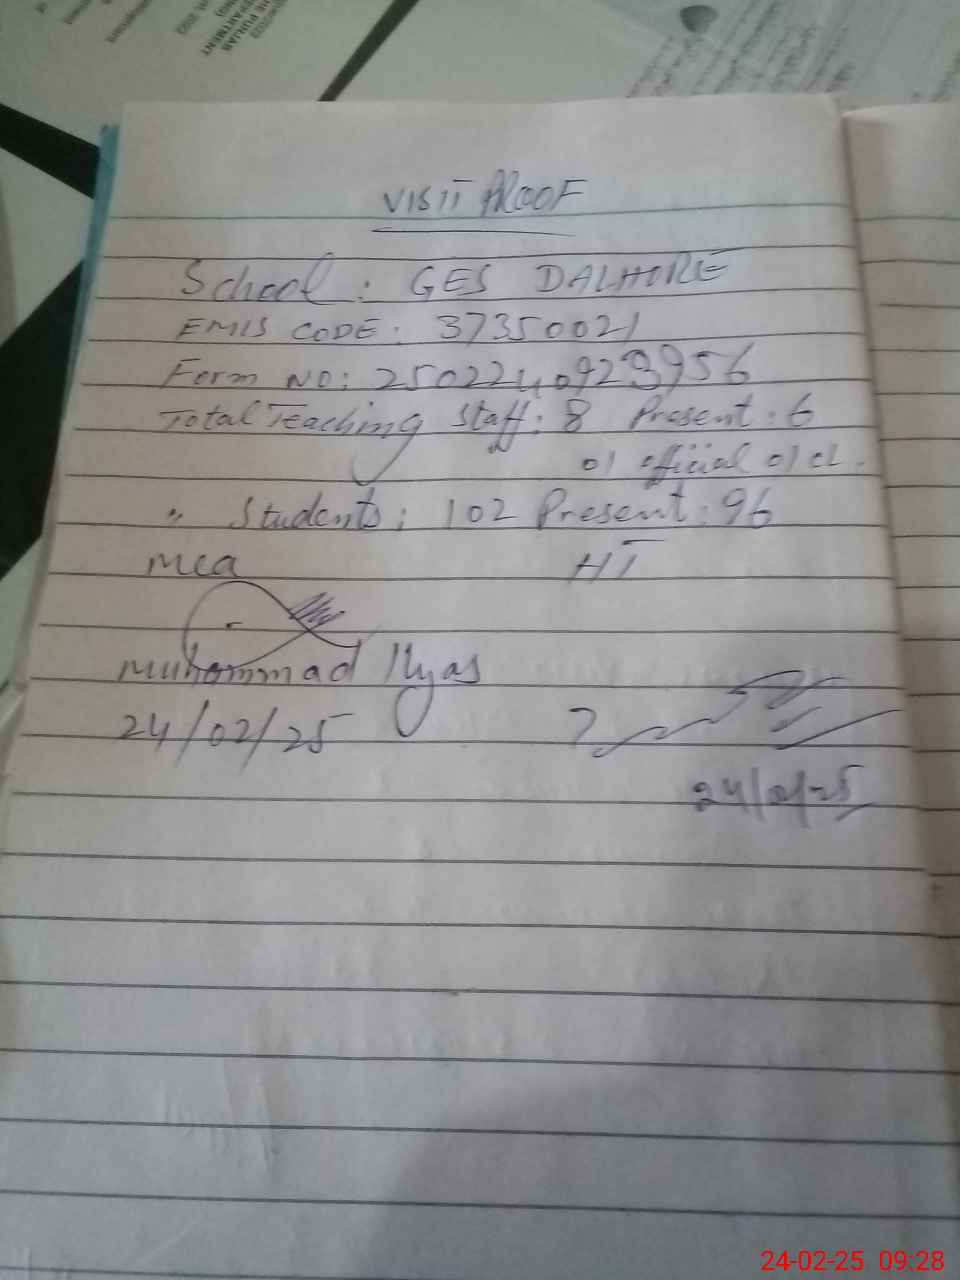 VISIT PROOF
School: GES DALHORE
EMIS CODE: 37350021
Form NO: 2502240923956
Total Teaching Staff: 8 Present: 6
01 official 01 cl.
" Students: 102 Present: 96
MEA
HT
Muhammad Ilyas
24/02/25
24/02/25
24-02-25 09:28